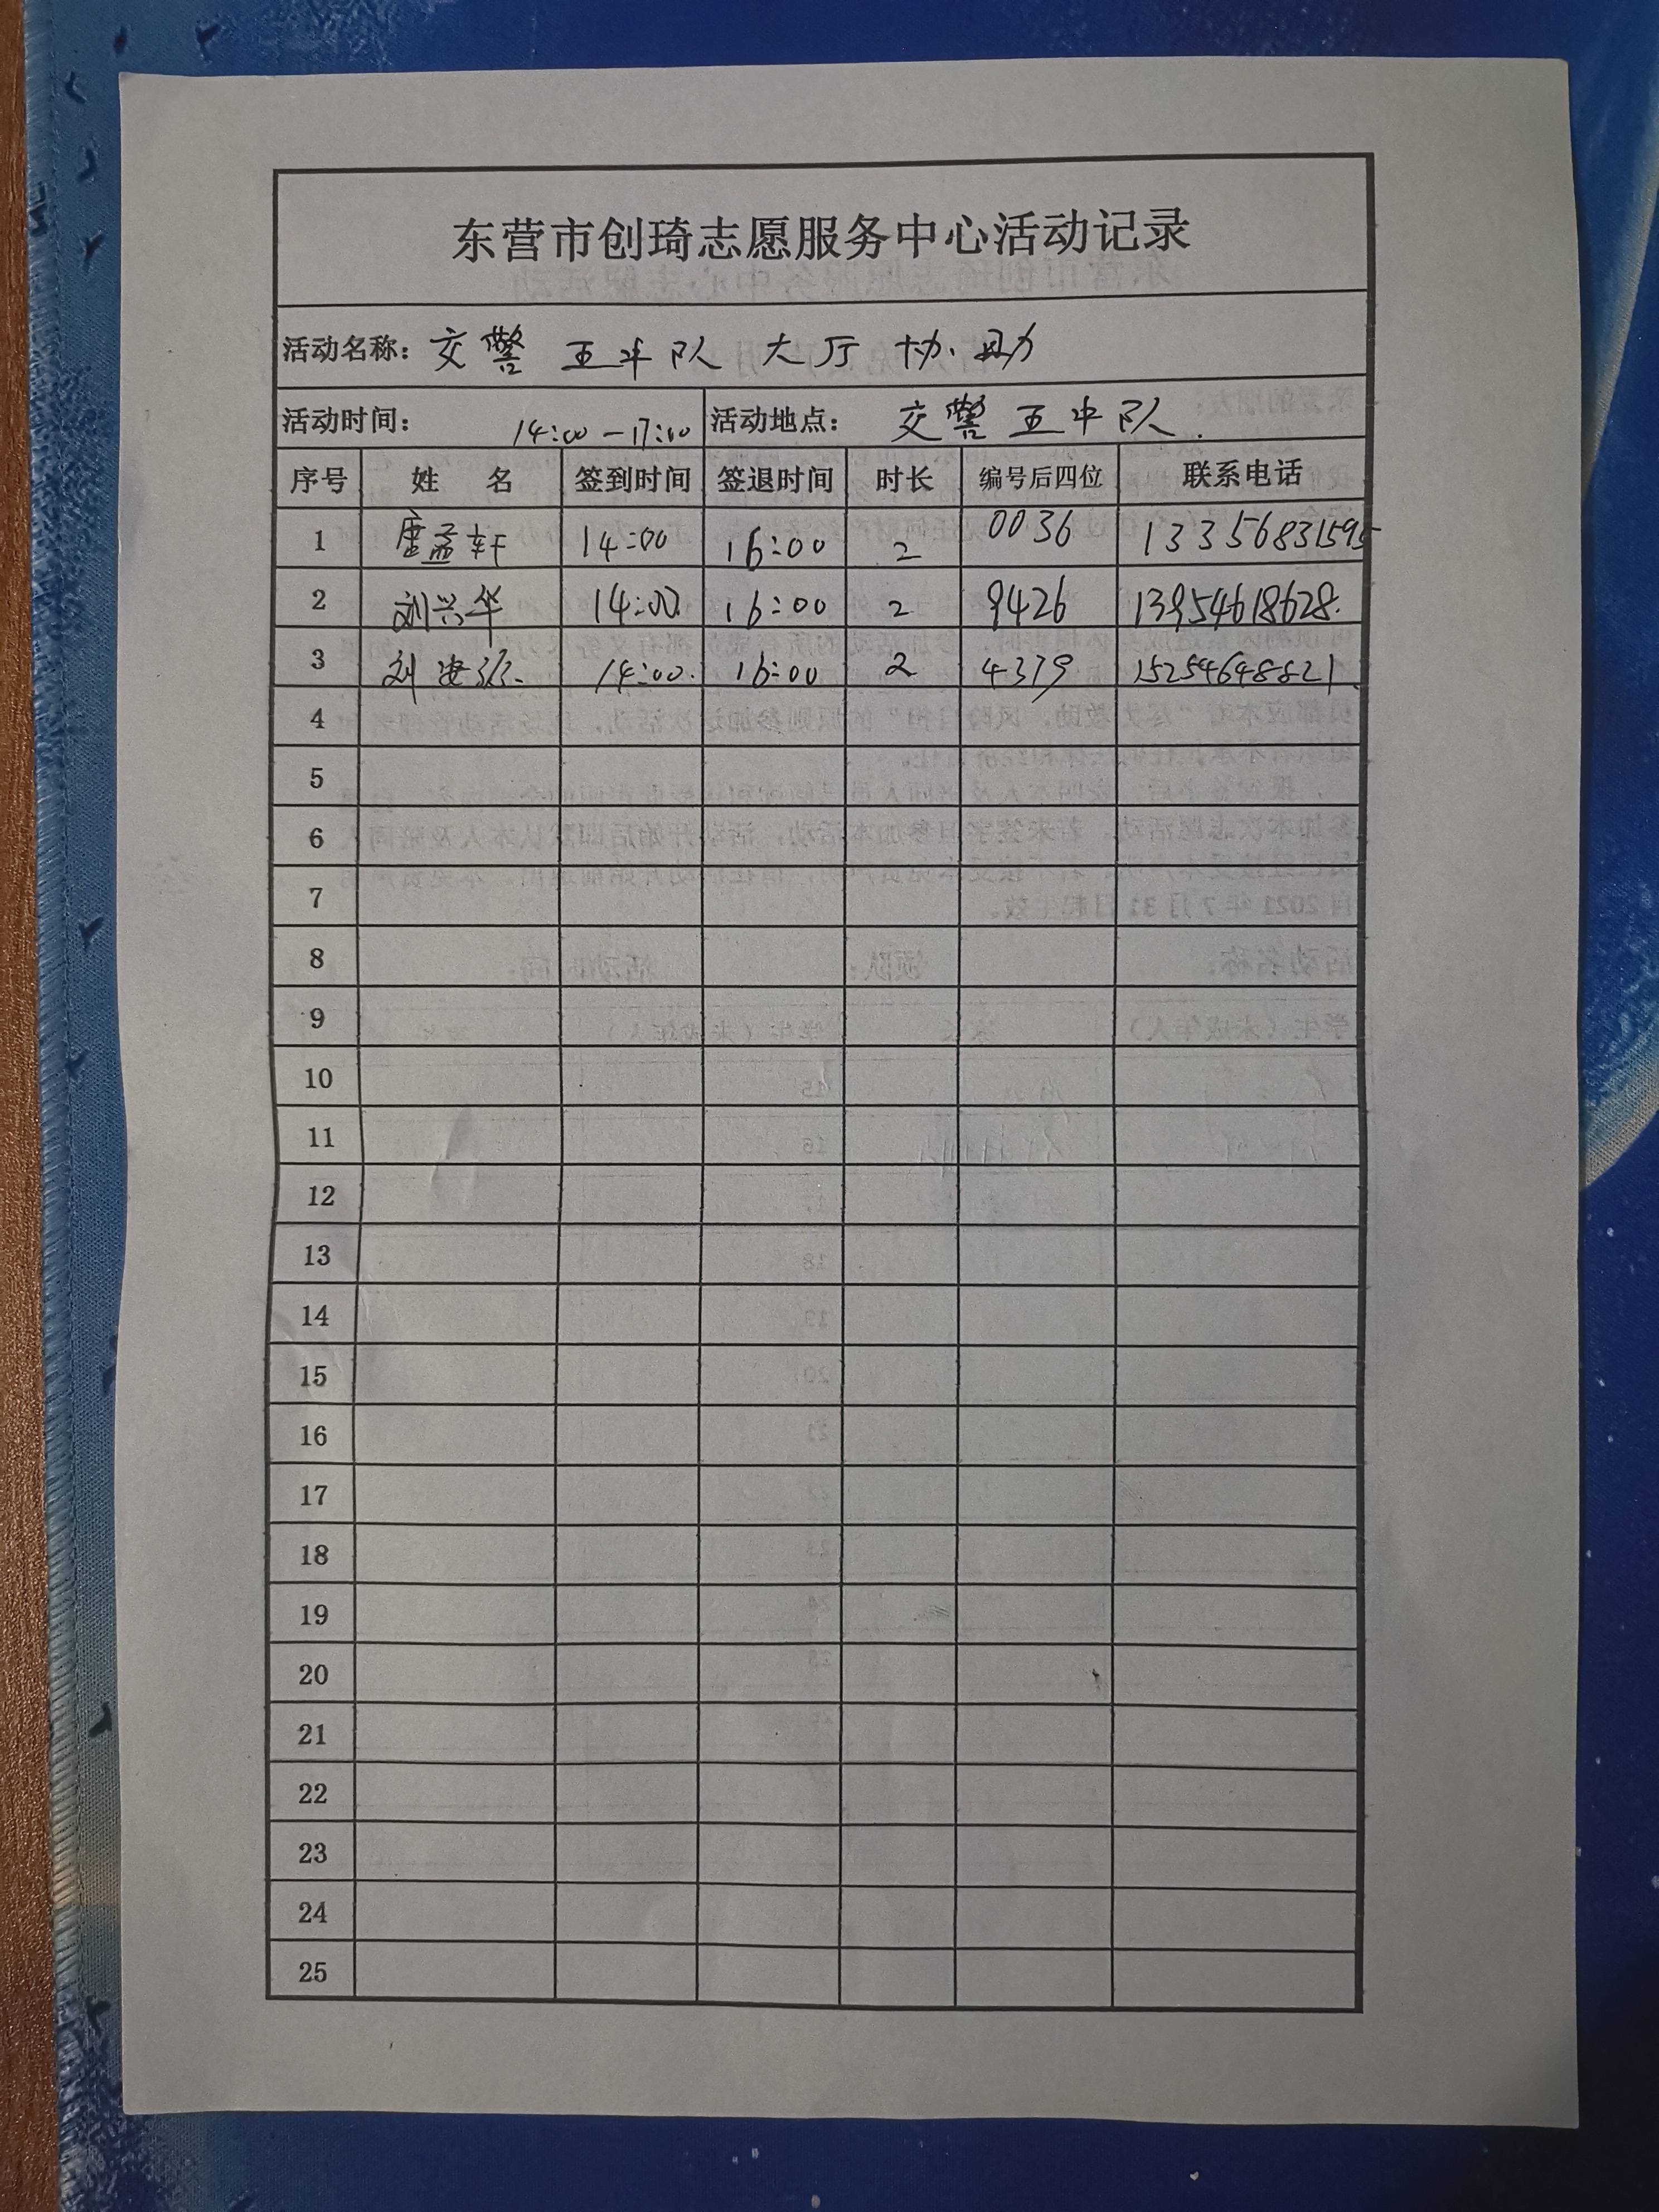 东营市创琦志愿服务中心活动记录
活动名称：交警五中队 大厅协助
活动时间：14:00-17:00 活动地点：交警五中队.
序号 姓 名 签到时间 签退时间 时长 编号后四位 联系电话
1 孟轩 14:00 16:00 2 0036 13356831595
2 刘兴华 14:00 16:00 2 9426 13954618628.
3 刘 14:00. 16:00 2 4379 15254648821.
4
5
6
7
8
9
10
11
12
13
14
15
16
17
18
19
20
21
22
23
24
25